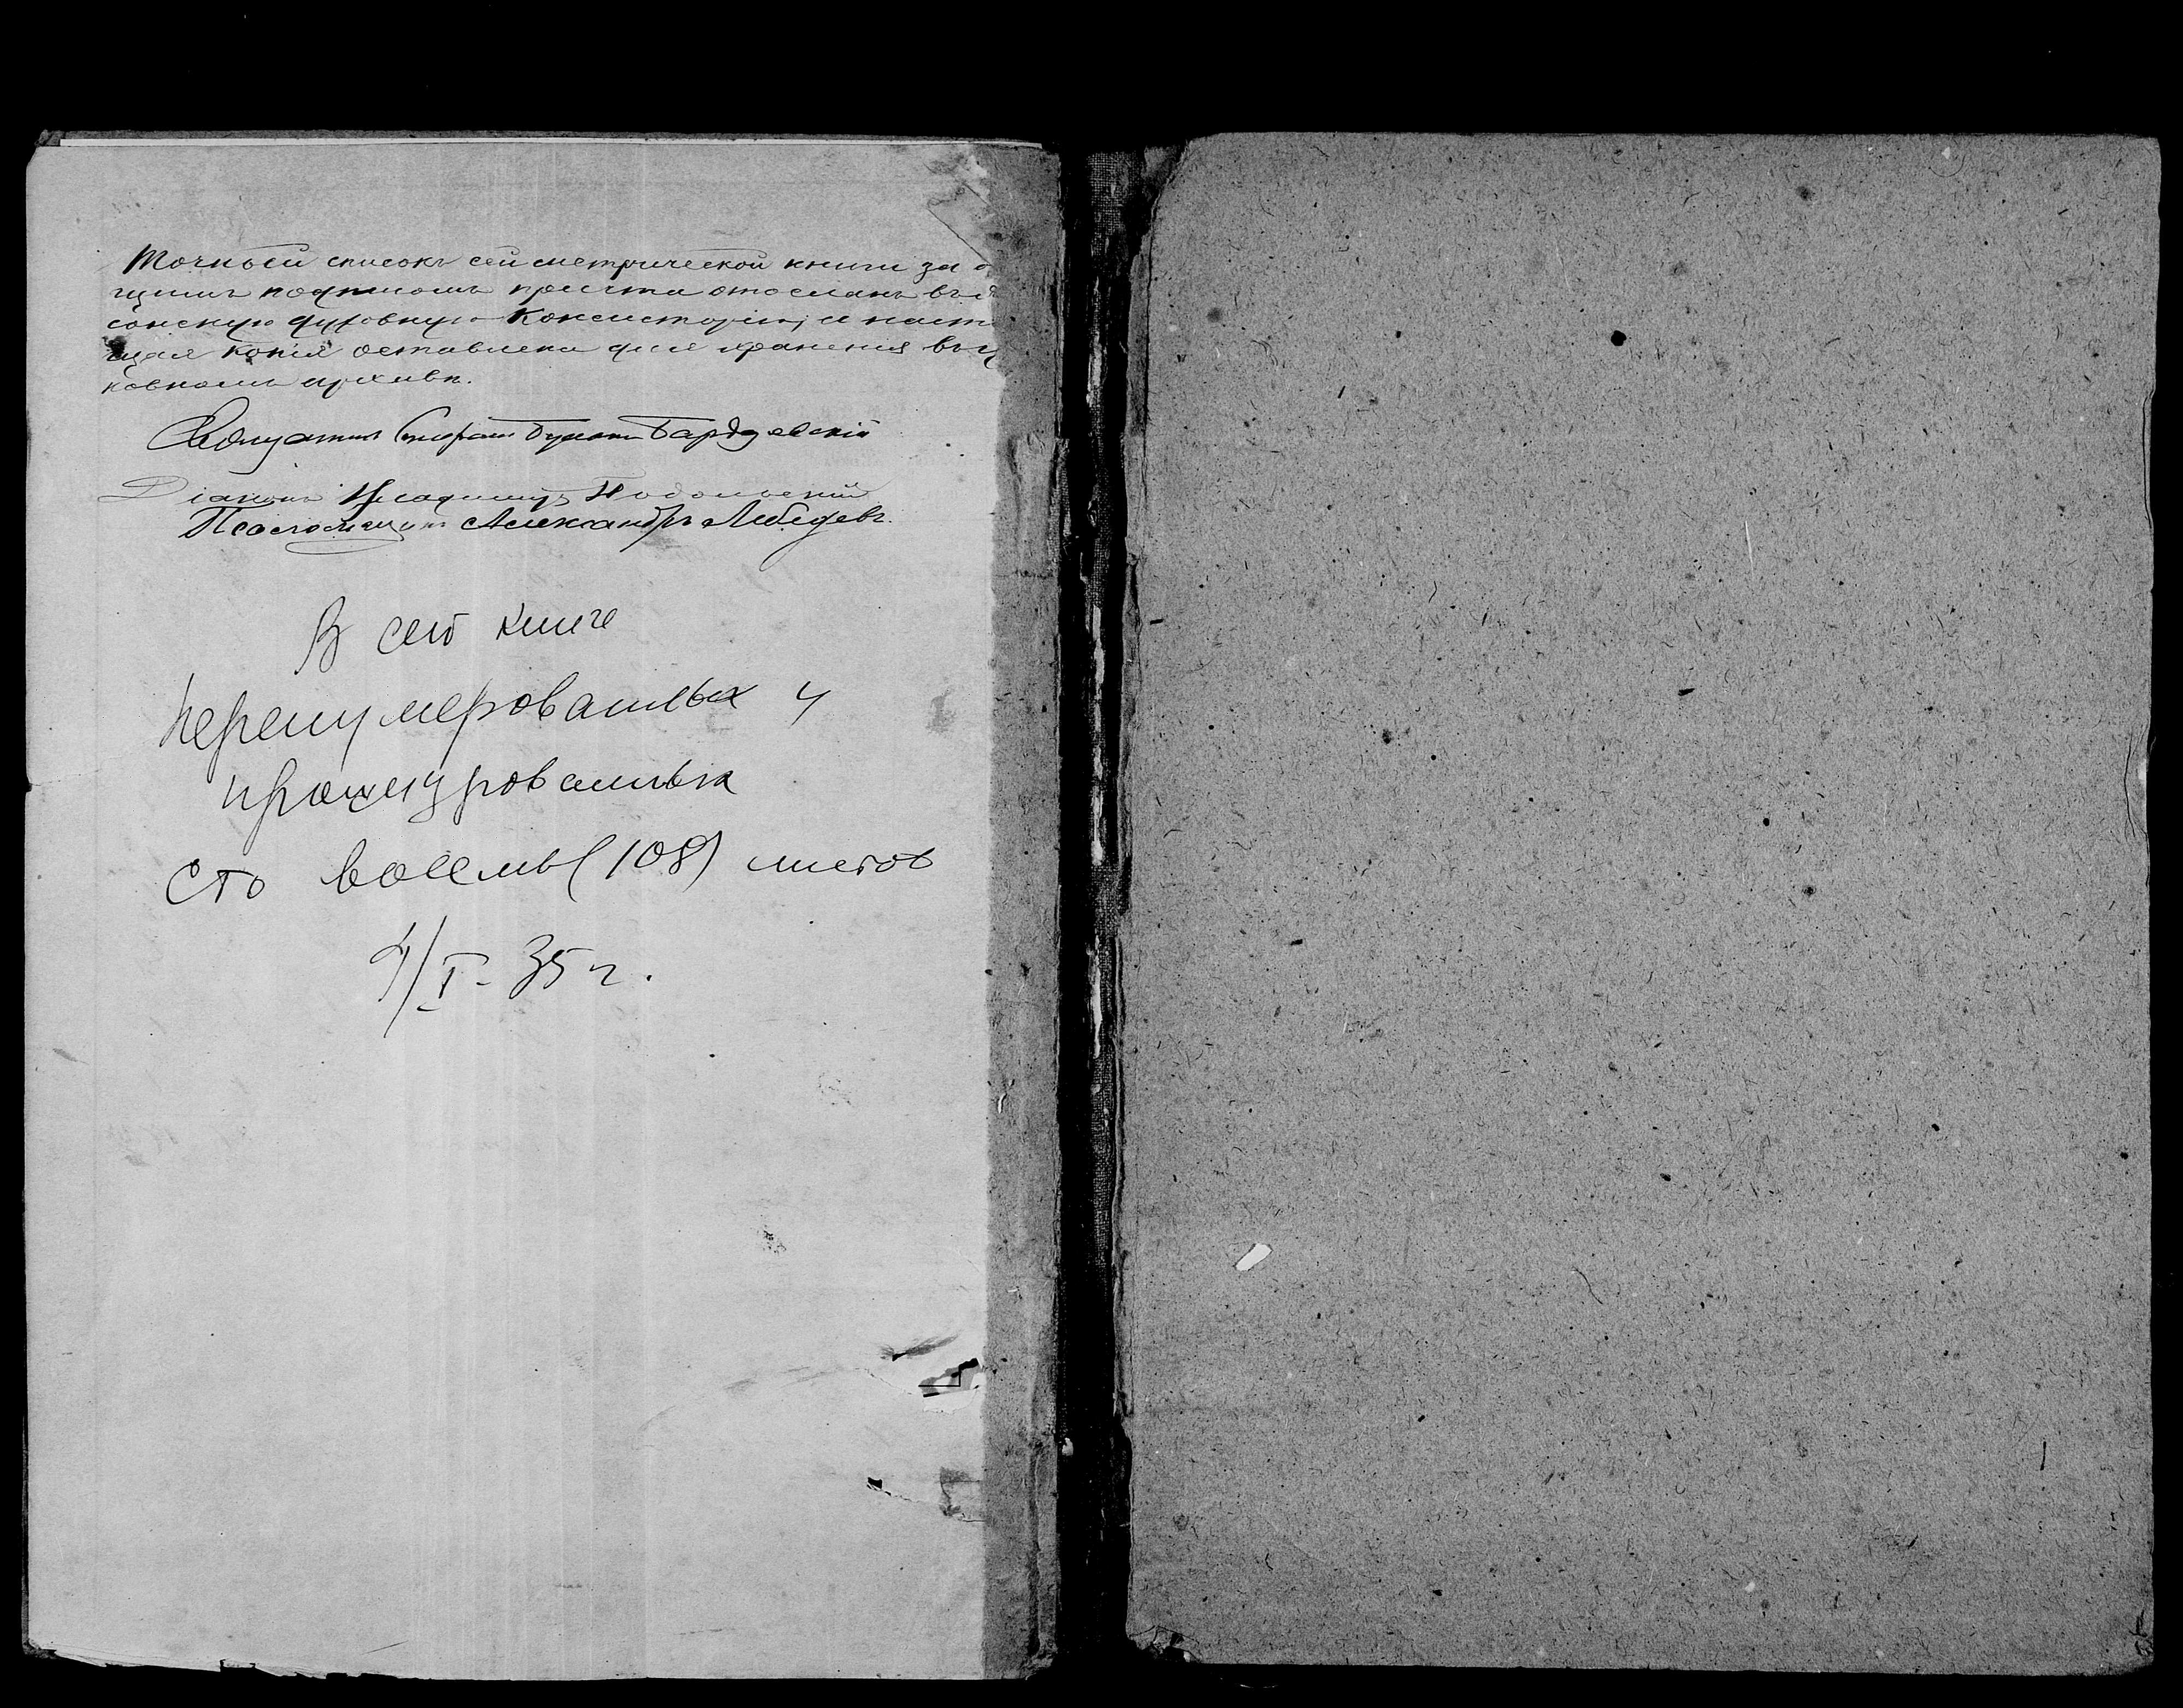 Точный списокъ сей метрической книги за о
щимъ подписомъ причта отосланъ въ
сонскую духовную Консисторію, и насто
щая копія оставлена для храненія въ ц
ковномъ архивѣ.
Священникъ Бардзевскій
Діаконъ Владиміръ Подольскій
Псаломщикъ Александръ Лебедевъ.
В сей книге
перенумерованных и
прошнурованных
сто восемь (108) листов
4/I - 35 г.